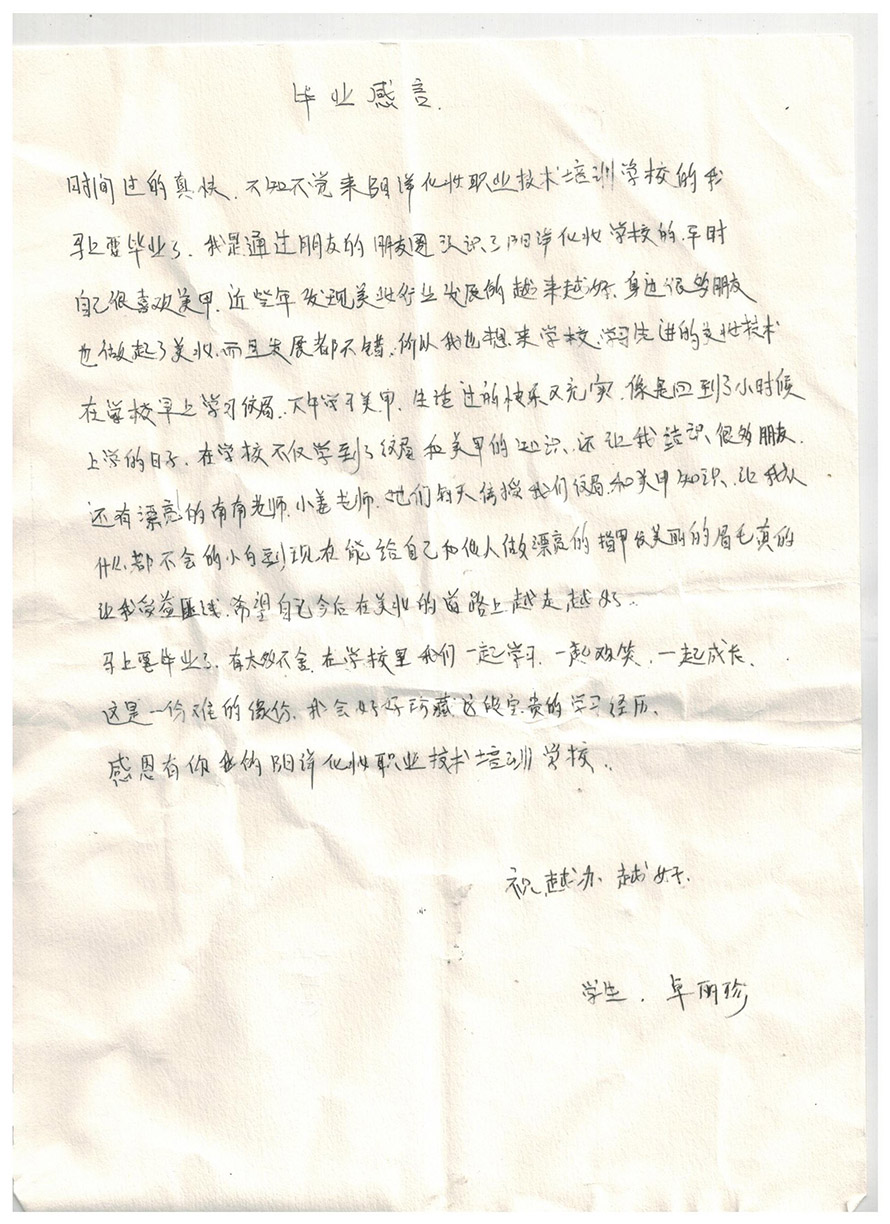 毕业感言.
时间过的真快.不知不觉来阳洋化妆职业技术培训学校的我
马上要毕业了.我是通过朋友的朋友圈认识了阳洋化妆学校的.平时
自己很喜欢美甲.近些年发现美妆行业发展的越来越好.身边很多朋友
也做起了美妆.而且发展都不错.所以我也想来学校.学习先进的美妆技术
在学校早上学习纹眉.下午学习美甲.生活过的快乐又充实.像是回到了小时候
上学的日子.在学校不仅学到了纹眉和美甲的知识.还让我结识很多朋友.
还有漂亮的南南老师.小姜老师.她们每天传授我们纹眉和美甲知识.让我从
什么都不会的小白到现在能给自己和他人做漂亮的指甲及美丽的眉毛真的
让我受益匪浅.希望自己今后在美妆的道路上越走越好..
马上要毕业了.有太多不舍.在学校里我们一起学习.一起欢笑.一起成长.
这是一份难的缘份.我会好好珍藏这段宝贵的学习经历.
感恩有你我的阳洋化妆职业技术培训学校..
祝越办越好.
学生.卓丽珍